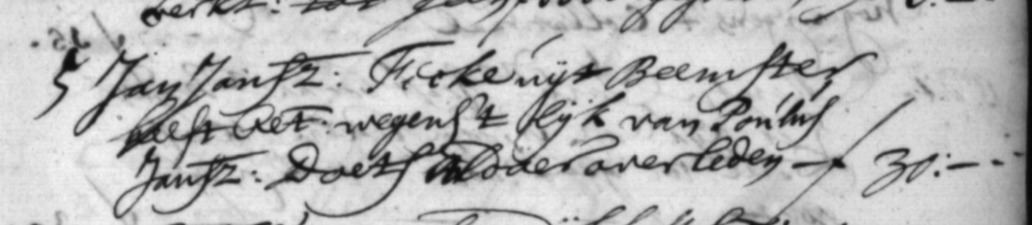 5 Jan Jansz: Ficke uijt Beemster
heeft bet: wegens 't lijk van Poulus
Jansz: Doets aldaer overleden — f 30:—